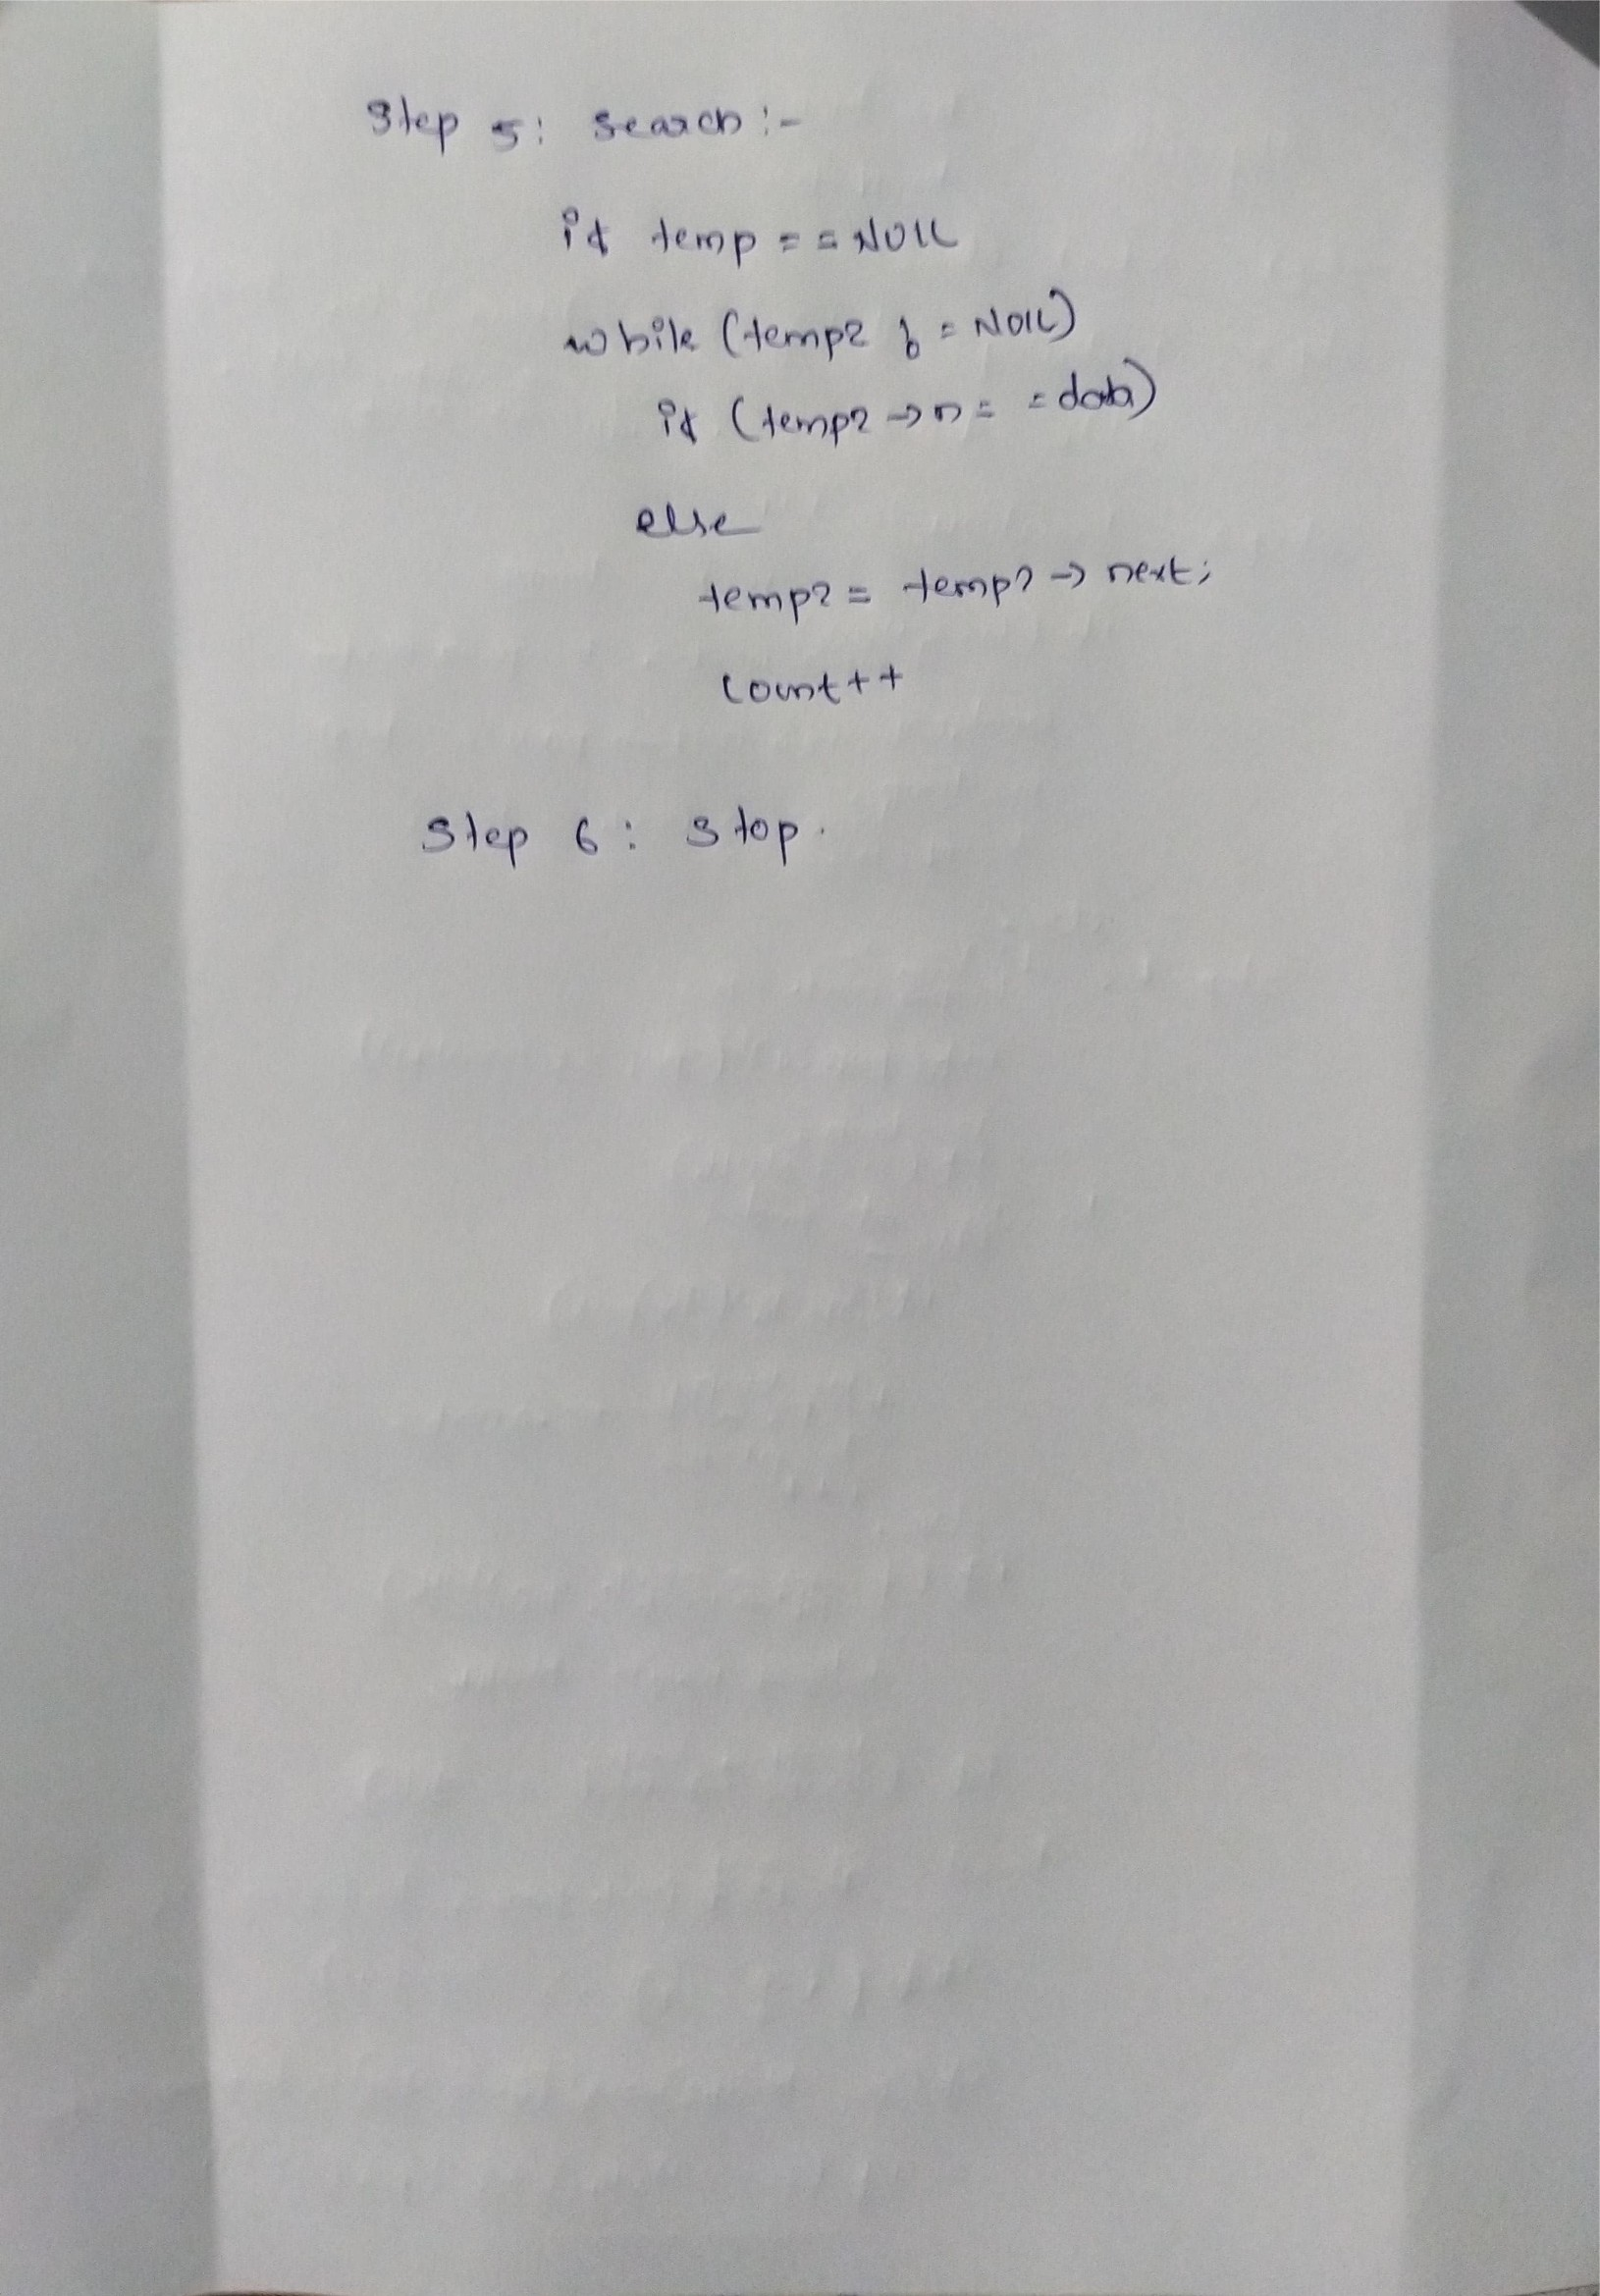 Step 5: search :-
if temp == NULL
while (temp2 != NULL)
if (temp2 → n == data)
else
temp2 = temp2 → next;
count++
Step 6: Stop.